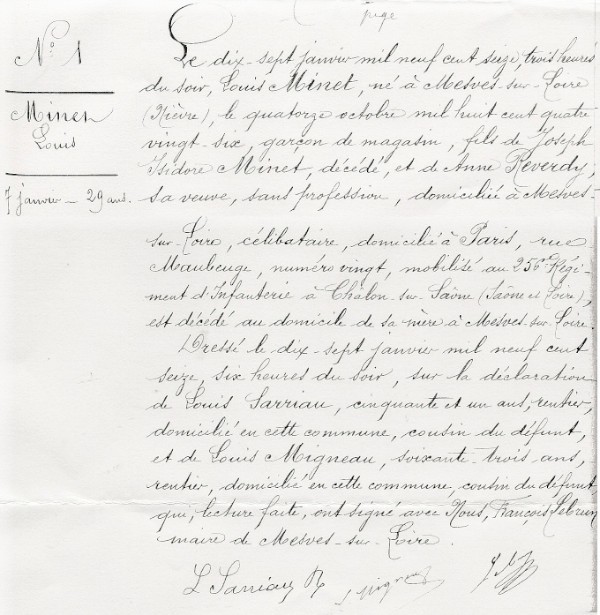 page
N° 1
Minet
Louis
7 janvier - 29 ans.
Le dix-sept janvier mil neuf cent seize, trois heures
du soir, Louis Minet, né à Mesves-sur-Loire
(Nièvre), le quatorze octobre mil huit cent quatre
vingt-six, garçon de magasin, fils de Joseph
Isidore Minet, décédé, et de Anne Reverdy,
sa veuve, sans profession, domiciliée à Mesves-
sur-Loire, célibataire, domicilié à Paris, rue
Maubeuge, numéro vingt, mobilisé au 256e Régi-
ment d'Infanterie à Châlon-sur-Saône (Saône et Loire),
est décédé au domicile de sa mère à Mesves-sur-Loire.
Dressé le dix-sept janvier mil neuf cent
seize, six heures du soir, sur la déclaration
de Louis Sarriau, cinquante et un ans, rentier,
domicilié en cette commune, cousin du défunt,
et de Louis Migneau, soixante-trois ans,
rentier, domicilié en cette commune, cousin du défunt,
qui, lecture faite, ont signé avec Nous, François Lebrun
maire de Mesves-sur-Loire.
L Sarriau